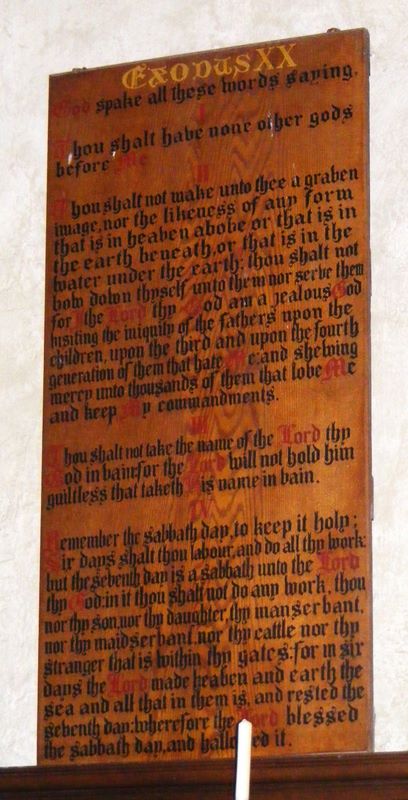 EXODUS XX
God spake all these words saying.
I
Thou shalt have none other gods
before Me
II
Thou shalt not make unto thee a graven
image, nor the likeness of any form
that is in heaven above or that is in
the earth beneath, or that is in the
water under the earth: thou shalt not
bow down thyself unto them nor serve them
for I the Lord thy God am a jealous God
visiting the iniquity of the fathers upon the
children, upon the third and upon the fourth
generation of them that hate Me: and shewing
mercy unto thousands of them that love Me
and keep My commandments.
III
Thou shalt not take the name of the Lord thy
God in vain: for the Lord will not hold him
guiltless that taketh His name in vain.
IV
Remember the sabbath day, to keep it holy:
Six days shalt thou labour, and do all thy work:
but the seventh day is a sabbath unto the Lord
thy God: in it thou shalt not do any work, thou
nor thy son, nor thy daughter, thy manservant,
nor thy maidservant, nor thy cattle nor thy
stranger that is within thy gates: for in six
days the Lord made heaven and earth the
sea and all that in them is, and rested the
seventh day: wherefore the Lord blessed
the sabbath day, and hallowed it.